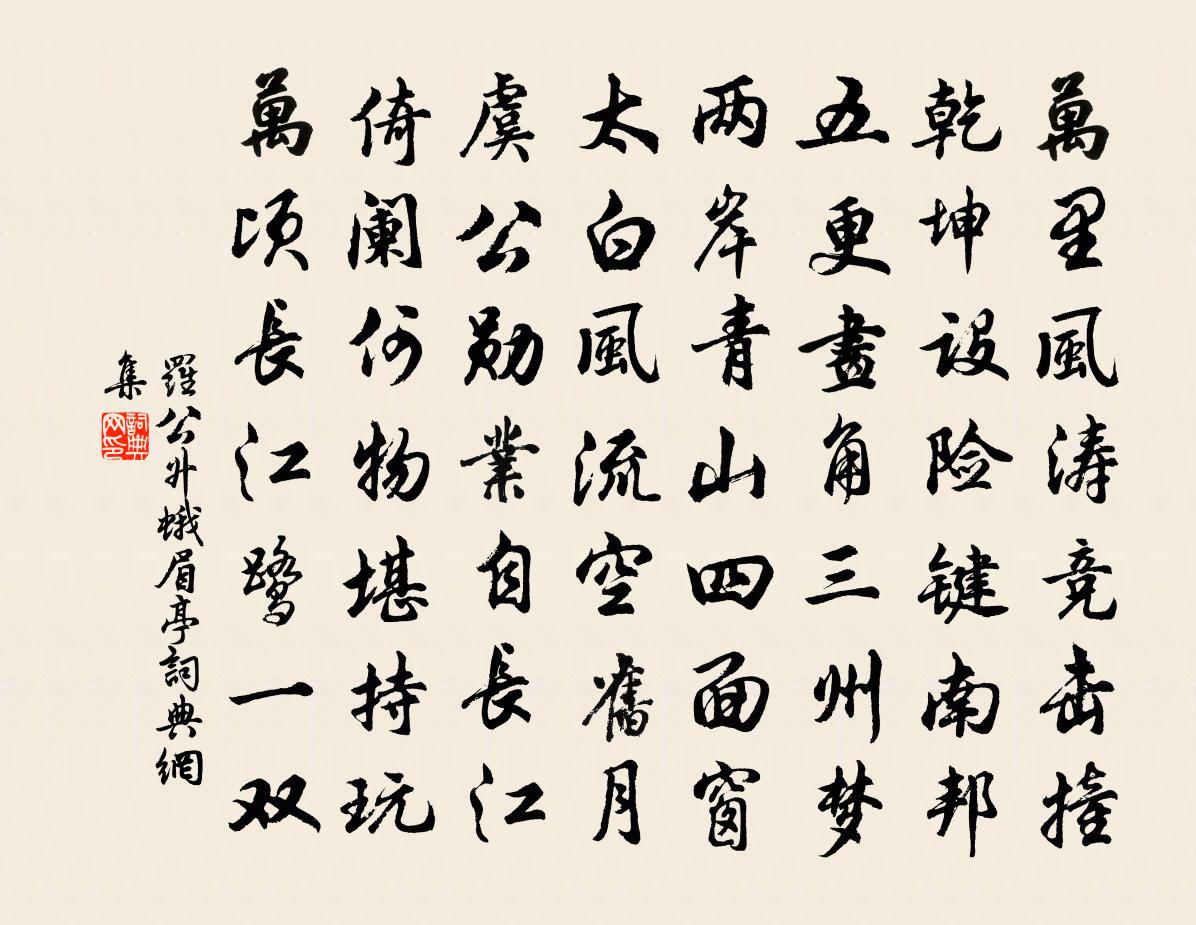 萬里風涛竞击撞
乾坤设险键南邦
五更畫角三州梦
两岸青山四面窗
太白風流空舊月
虞公勋業自長江
倚阑何物堪持玩
萬顷長江鹭一双
羅公升蛾眉亭詞典網
集
詞典网印